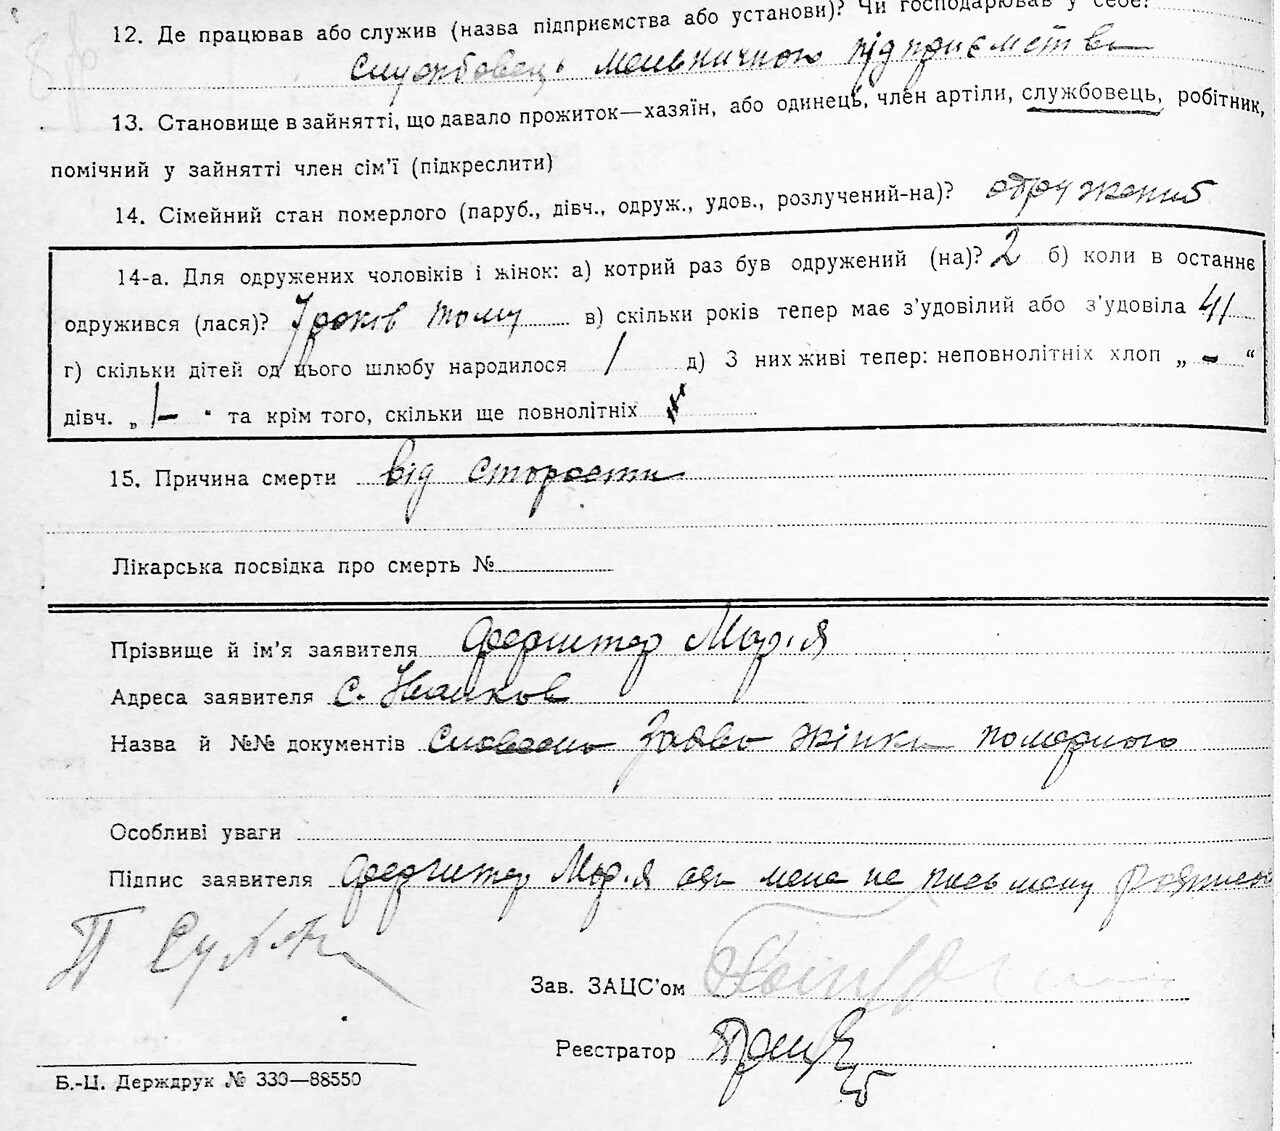 12. Де працював або служив (назва підприємства або установи)? Чи господарював у себе?
службовець мельничного підприємства
13. Становище в зайнятті, що давало прожиток—хазяїн, або одинець, член артіли, службовець, робітник,
помічний у зайнятті член сім'ї (підкреслити)
14. Сімейний стан померлого (паруб., дівч., одруж., удов., розлучений-на)? одружений
14-а. Для одружених чоловіків і жінок: а) котрий раз був одружений (на)? 2 б) коли в останнє
одружився (лася)? років тому в) скільки років тепер має з'удовілий або з'удовіла 41
г) скільки дітей од цього шлюбу народилося 1 д) З них живі тепер: неповнолітніх хлоп „ - “
дівч. „ 1- “ та крім того, скільки ще повнолітніх
15. Причина смерти від старости
Лікарська посвідка про смерть №
Прізвище й ім'я заявителя Марія
Адреса заявителя с.
Назва й №№ документів словесно заява жінки
Особливі уваги
Підпис заявителя Марія
Зав. ЗАЦС'ом
Реєстратор
Б.-Ц. Держдрук № 330—88550